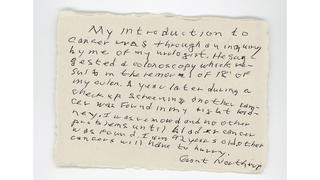 My introduction to
cancer was through an inquiry
by me of my urologist. He sug
gested a colonoscopy which re-
sulted in the removal of 18" of
my colon. A year later during a
check up screening another can-
cer was found in my right kid-
ney. It was removed and no other
problems until bladder cancer
was found. I am 92 years old other
cancers will have to hurry.
Grant Northrup